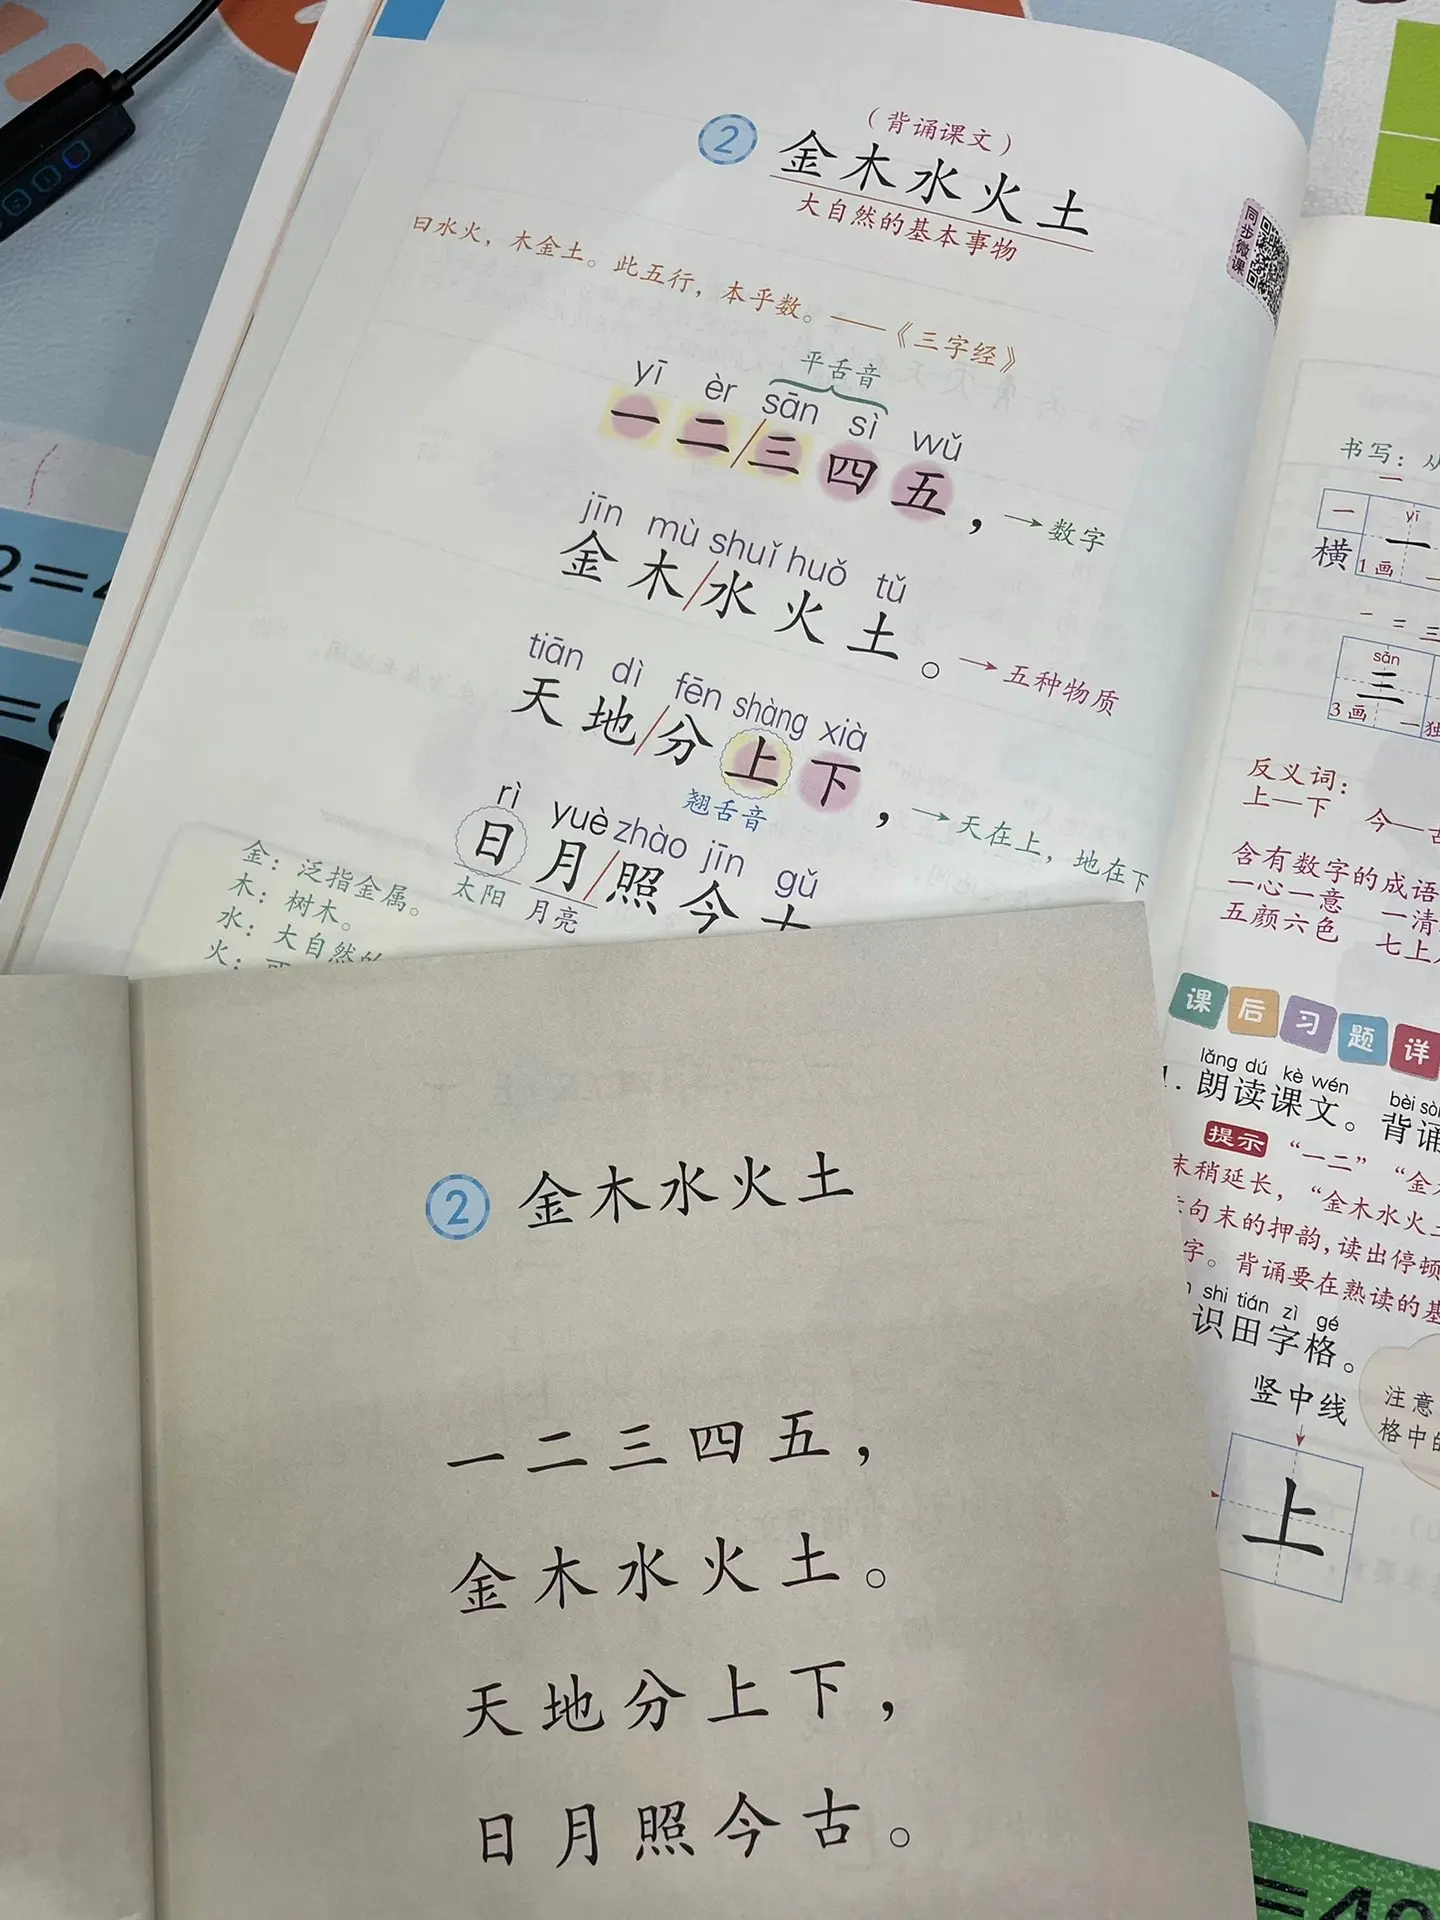 (背诵课文)
2 金木水火土
大自然的基本事物
同步微课
曰水火，木金土。此五行，本乎数。——《三字经》
平舌音
yī èr sān sì wǔ
一二/三四五，→数字
jīn mù shuǐ huǒ tǔ
金木/水火土。→五种物质
tiān dì fēn shàng xià
天地/分上下，→天在上，地在下
翘舌音
rì yuè zhào jīn gǔ
日月/照今古
太阳 月亮
金：泛指金属。
木：树木。
水：大自然的
火：
书写：从
一
一 yī 一
横 1画 一
一 二 三
sān
三
3画 一
反义词：
上—下 今—古
含有数字的成语
一心一意 一清
五颜六色 七上
课后习题详
lǎng dú kè wén bèi sòn
1. 朗读课文。背诵
提示 “一二”“金木
末稍延长，“金木水火土
句末的押韵，读出停顿
字。背诵要在熟读的基
shi tián zì gé
识田字格。
竖中线
注意
格中的
上
2=4
=6
=40
2 金木水火土
一二三四五，
金木水火土。
天地分上下，
日月照今古。